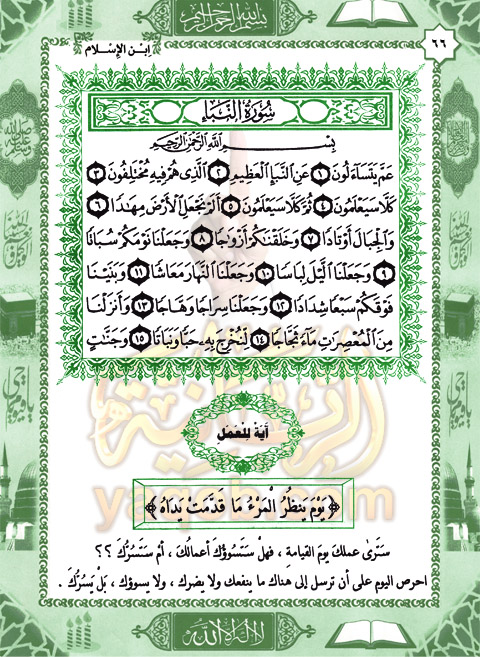 بسم الله الرحمن الرحيم
٦٦
ابن الإسلام
سُورَةُ النَّبَإِ
بِسْمِ اللَّهِ الرَّحْمَٰنِ الرَّحِيمِ
عَمَّ يَتَسَاءَلُونَ ١ عَنِ النَّبَإِ الْعَظِيمِ ٢ الَّذِي هُمْ فِيهِ مُخْتَلِفُونَ ٣
كَلَّا سَيَعْلَمُونَ ٤ ثُمَّ كَلَّا سَيَعْلَمُونَ ٥ أَلَمْ نَجْعَلِ الْأَرْضَ مِهَادًا ٦
وَالْجِبَالَ أَوْتَادًا ٧ وَخَلَقْنَاكُمْ أَزْوَاجًا ٨ وَجَعَلْنَا نَوْمَكُمْ سُبَاتًا
٩ وَجَعَلْنَا اللَّيْلَ لِبَاسًا ١٠ وَجَعَلْنَا النَّهَارَ مَعَاشًا ١١ وَبَنَيْنَا
فَوْقَكُمْ سَبْعًا شِدَادًا ١٢ وَجَعَلْنَا سِرَاجًا وَهَّاجًا ١٣ وَأَنزَلْنَا
مِنَ الْمُعْصِرَاتِ مَاءً ثَجَّاجًا ١٤ لِّنُخْرِجَ بِهِ حَبًّا وَنَبَاتًا ١٥ وَجَنَّاتٍ
آيَةٌ لِلْعَمَلِ
﴿ يَوْمَ يَنظُرُ الْمَرْءُ مَا قَدَّمَتْ يَدَاهُ ﴾
سَتَرَى عملكَ يومَ القيامةِ ، فهلْ سَتَسُوؤُكَ أعمالُكَ ، أمْ سَتَسُرُّكَ ؟؟
احرص اليوم على أن ترسل إلى هناك ما ينفعك ولا يضرك ، ولا يسوؤك ، بَلْ يَسُرُّكَ .
لا إله إلا الله